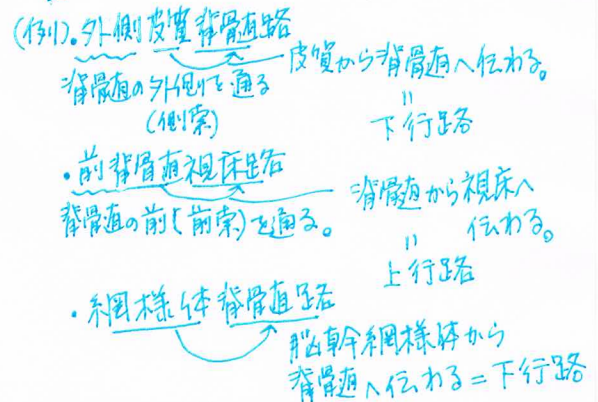 (例)・外側皮質脊髄路
皮質から脊髄へ伝わる。
脊髄の外側を通る
(側索)
=
下行路
・前脊髄視床路
脊髄から視床へ
伝わる。
脊髄の前(前索)を通る。
=
上行路
・網様体脊髄路
脳幹網様体から
脊髄へ伝わる=下行路